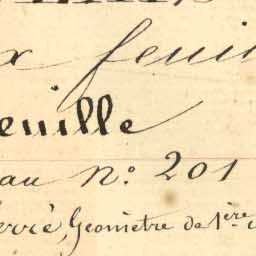 x feuil
euille
au n.° 201
erré, Géomètre de 1ère c